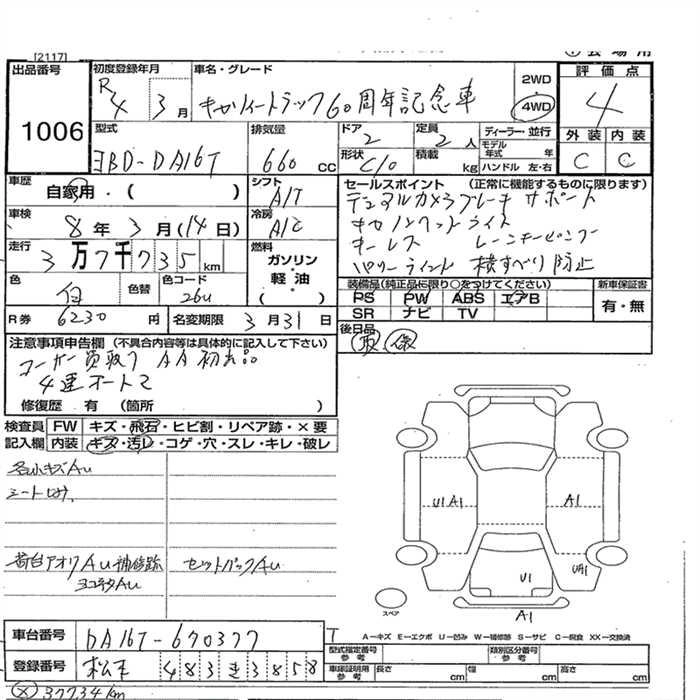 [2117]
出品番号
1006
初度登録年月
R4 3月
車名・グレード
キャリイトラック60周年記念車
2WD
4WD
評価点
4
外装 内装
C C
型式
3BD-DA16T
排気量
660 CC
ドア
2
形状
C/O
定員
2人
積載 kg
ディーラー・並行
モデル年式 年
ハンドル 左・右
車歴
自家用・( )
シフト
A/T
車検
8年3月(14日)
冷房
A/C
走行
3万7千735km
燃料
ガソリン・軽油・( )
色
白
色替
色コード
26U
R券 6230円
名変期限 3月31日
セールスポイント (正常に機能するものに限ります)
デュアルカメラブレーキサポート
キーレス
横すべり防止
装備品(純正品に限り○をつけてください)
PS PW ABS エアB
SR ナビ TV
新車保証書
有・無
後日品
取 保
注意事項申告欄 (不具合内容等は具体的に記入して下さい)
ユーザー買取り AA初出品
修復歴 有 (箇所 )
検査員記入欄
FW キズ・飛石・ヒビ割・リペア跡・×要
内装 キズ・汚レ・コゲ・穴・スレ・キレ・破レ
各小キズAu
荷台アオリAu補修跡
セットバックAu
U1 A1
A1
U1
A1
スペア
A-キズ E-エクボ U-凹み W-補修跡 S-サビ C-腐食 XX-交換済
車台番号
DA16T-670377
登録番号
松本 483 き 3858
型式指定番号 参考
類別区分番号 参考
車庫証明用 参考
長さ cm 幅 cm 高さ cm
37734km